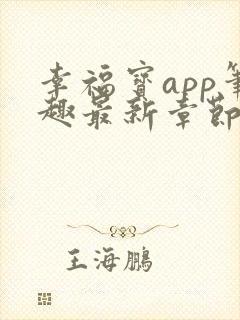 幸福寶app筆
趣最新章節
王海鵬